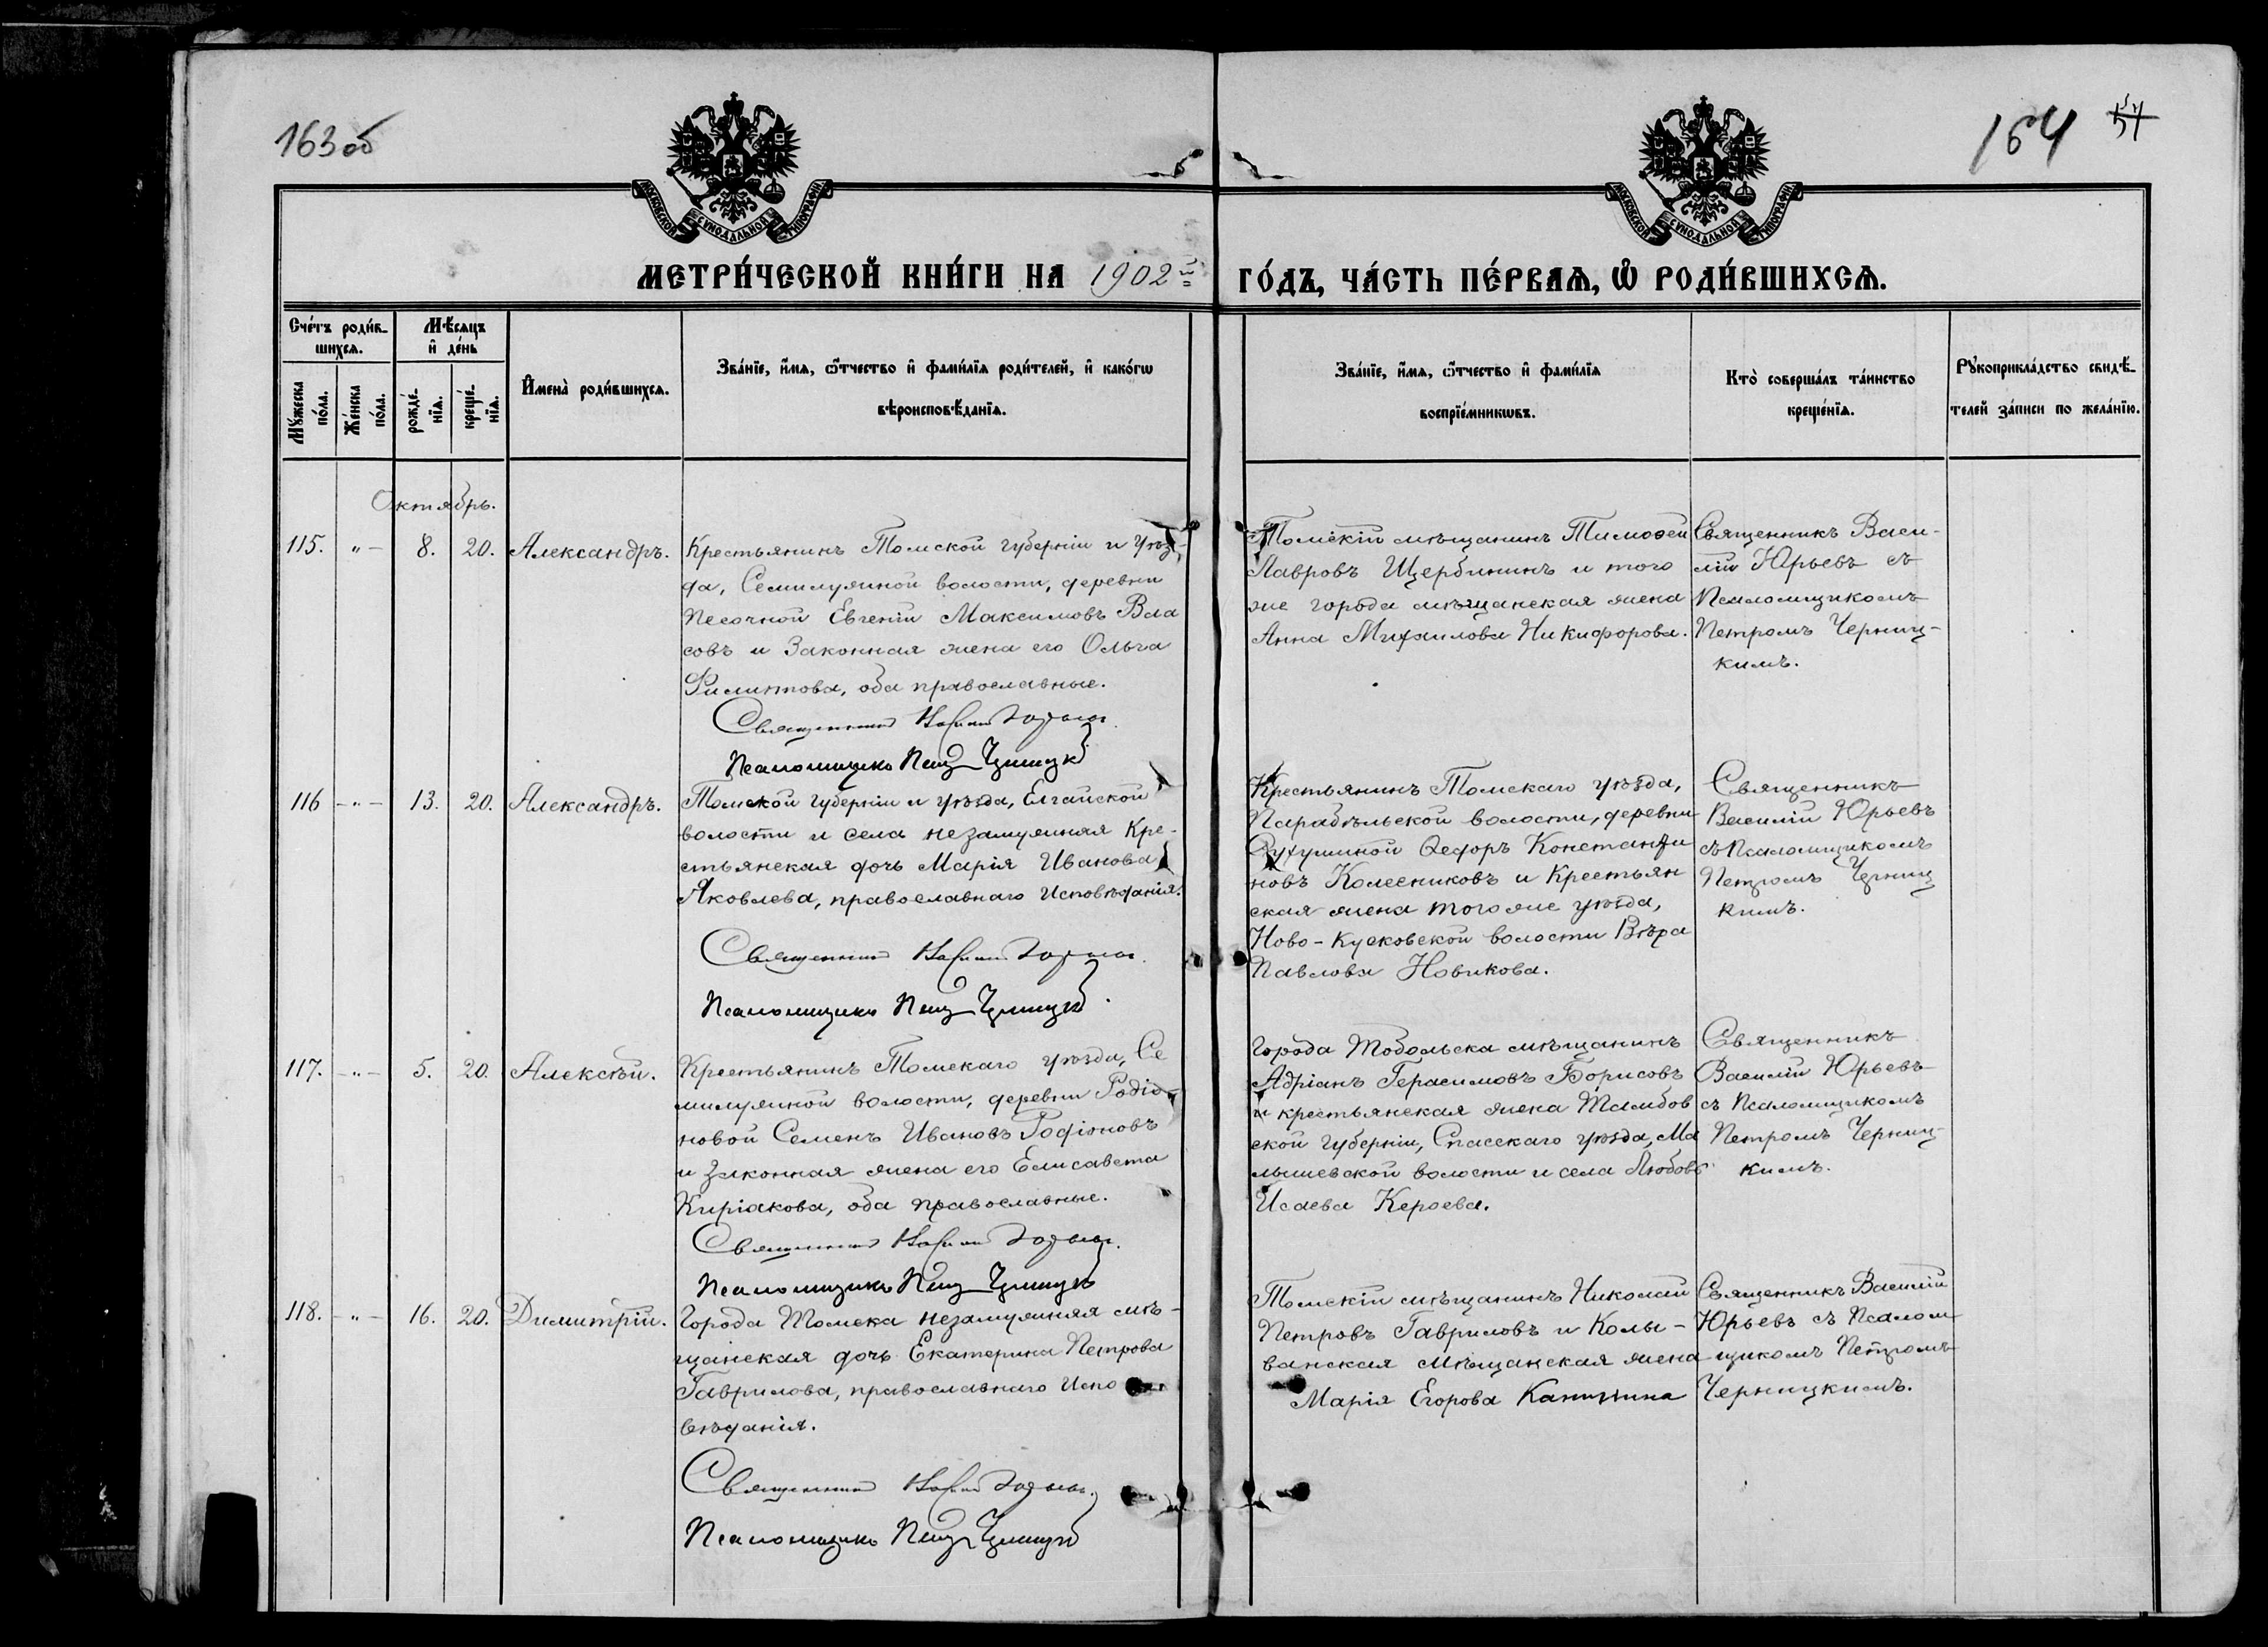 163 об
164
МОСКОВСКОЙ СѴНОДАЛЬНОЙ ТИПОГРАФІИ
МОСКОВСКОЙ СѴНОДАЛЬНОЙ ТИПОГРАФІИ
МЕТРИ́ЧЕСКОЙ КНИ́ГИ НА 1902й ГО́ДЪ, ЧА́СТЬ ПЕ́РВАѦ, Ѡ РОДИ́ВШИХСѦ.
Сче́тъ роди́в-
шихсѧ.
Мꙋ́жеска
по́ла.
Же́нска
по́ла.
Мѣ́сѧцъ
и҆ де́нь
рожде́-
нїѧ.
креще́-
нїѧ.
И҆мена̀ роди́вшихсѧ.
Зва́нїе, и҆́мѧ, ѻ҆́тчество и҆ фами́лїѧ роди́телей, и҆ како́гѡ
вѣроисповѣ́данїѧ.
Зва́нїе, и҆́мѧ, ѻ҆́тчество и҆ фами́лїѧ
воспрїе́мникѡвъ.
Кто̀ соверша́лъ та́инство
креще́нїѧ.
Рꙋкоприкла́дство свидѣ́-
телей за́писи по жела́нїю.
Октябрь.
115. "- 8. 20. Александръ.
Крестьянинъ Томской губерніи и уѣз-
да, Семилужной волости, деревни
Песочной Евгеній Максимовъ Вла
совъ и законная жена его Ольга
Филиппова, оба православные.
Священникъ Василій Юрьевъ.
Псаломщикъ Петръ Черницкій
Томскій мѣщанинъ Тимоѳей
Лавровъ Щербининъ и того
же города мѣщанская жена
Анна Михаилова Никифорова.
Священникъ Васи-
лій Юрьевъ съ
Псаломщикомъ
Петромъ Черниц-
кимъ.
116 -"- 13. 20. Александръ.
Томской губерніи и уѣзда, Елгайской
волости и села незамужняя кре-
стьянская дочь Марія Иванова
Яковлева, православнаго исповѣданія.
Священникъ Василій Юрьевъ.
Псаломщикъ Петръ Черницкій.
Крестьянинъ Томскаго уѣзда,
Парабѣльской волости, деревни
Сухушиной Ѳедоръ Константи
новъ Колесниковъ и крестьян
ская жена того же уѣзда,
Ново-Кусковской волости Вѣра
Павлова Новикова.
Священникъ
Василій Юрьевъ
съ Псаломщикомъ
Петромъ Черниц
кимъ.
117. -"- 5. 20. Алексѣй.
Крестьянинъ Томскаго уѣзда, Се
милужной волости, деревни Родіо-
новой Семенъ Ивановъ Родіоновъ
и законная жена его Елисавета
Киріакова, оба православные.
Священникъ Василій Юрьевъ.
Псаломщикъ Петръ Черницкій
Города Тобольска мѣщанинъ
Адріанъ Герасимовъ Борисовъ
и крестьянская жена Тамбов
ской губерніи, Спасскаго уѣзда, Ма
лышевской волости и села Любовь
Исаева Кероева.
Священникъ
Василій Юрьевъ
съ Псаломщикомъ
Петромъ Черниц-
кимъ.
118. -"- 16. 20. Димитрій.
Города Томска незамужняя мѣ-
щанская дочь Екатерина Петрова
Гаврилова, православнаго испо
вѣданія.
Священникъ Василій Юрьевъ.
Псаломщикъ Петръ Черницкій
Томскій мѣщанинъ Николай
Петровъ Гавриловъ и Колы-
ванская мѣщанская жена
Марія Егорова
Священникъ Василій
Юрьевъ съ Псалом
щикомъ Петромъ
Черницкимъ.